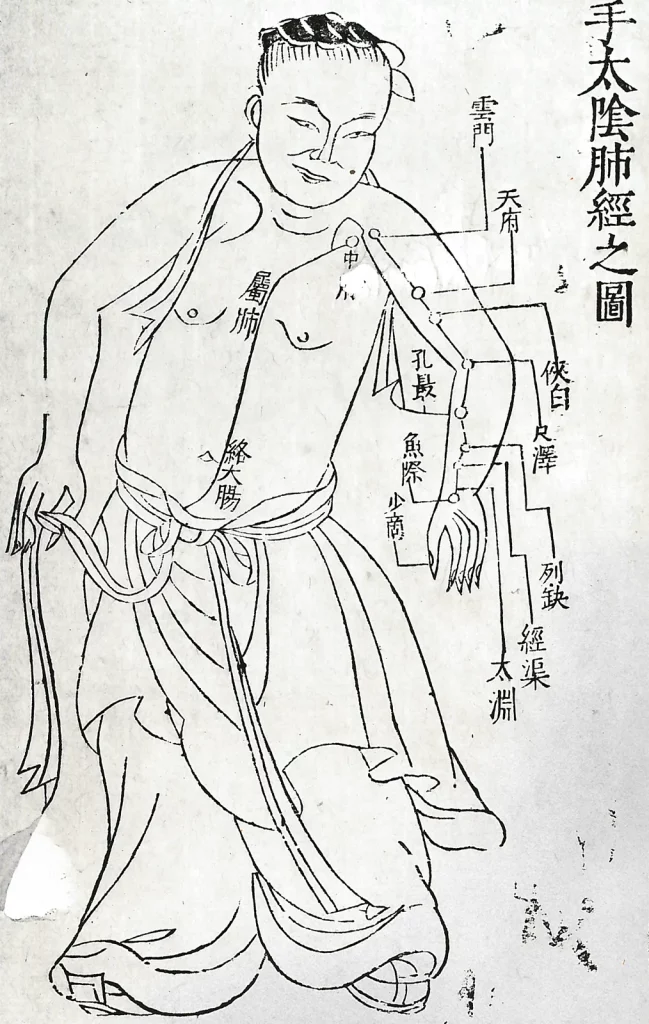 手太陰肺經之圖
雲門
天府
中
俠白
尺澤
孔最
列缺
經渠
太淵
魚際
少商
屬肺
絡大腸